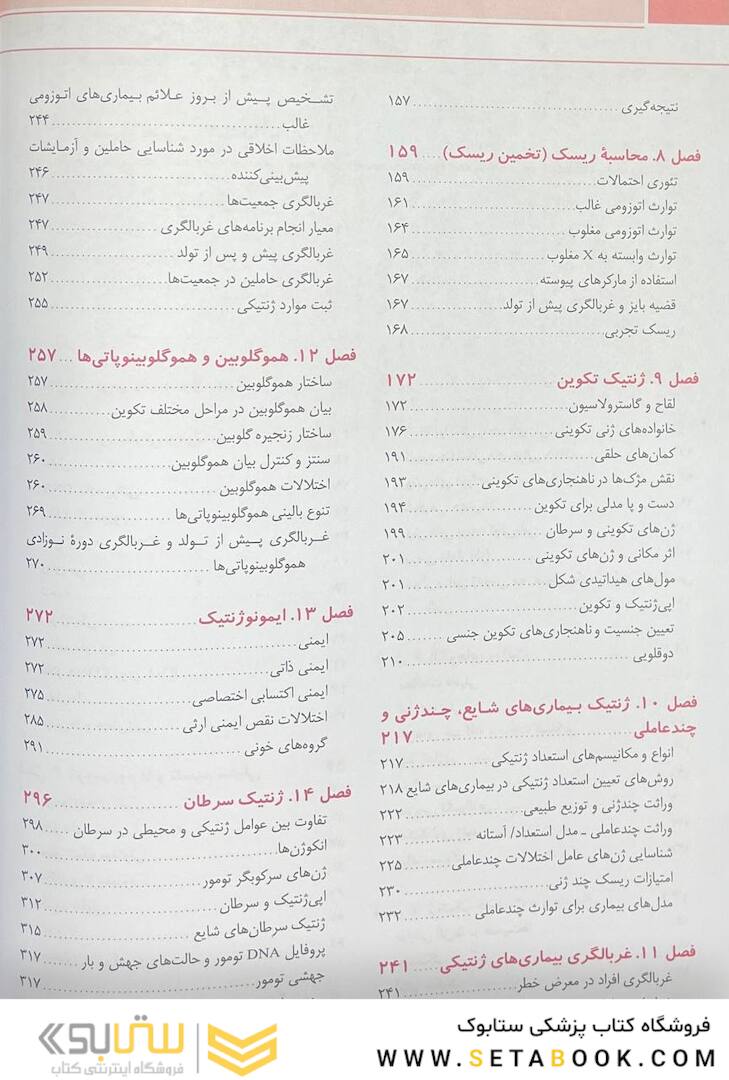 نتیجه‌گیری ۱۵۷
فصل ۸. محاسبهٔ ریسک (تخمین ریسک) ۱۵۹
تئوری احتمالات ۱۵۹
توارث اتوزومی غالب ۱۶۱
توارث اتوزومی مغلوب ۱۶۴
توارث وابسته به X مغلوب ۱۶۵
استفاده از مارکرهای پیوسته ۱۶۷
قضیه بایز و غربالگری پیش از تولد ۱۶۷
ریسک تجربی ۱۶۸
فصل ۹. ژنتیک تکوین ۱۷۲
لقاح و گاسترولاسیون ۱۷۲
خانواده‌های ژنی تکوینی ۱۷۶
کمان‌های حلقی ۱۹۱
نقش مژک‌ها در ناهنجاری‌های تکوینی ۱۹۳
دست و پا مدلی برای تکوین ۱۹۴
ژن‌های تکوینی و سرطان ۱۹۹
اثر مکانی و ژن‌های تکوینی ۲۰۱
مول‌های هیداتیدی شکل ۲۰۱
اپی‌ژنتیک و تکوین ۲۰۲
تعیین جنسیت و ناهنجاری‌های تکوین جنسی ۲۰۵
دوقلویی ۲۱۰
فصل ۱۰. ژنتیک بیماری‌های شایع، چندژنی و
چندعاملی ۲۱۷
انواع و مکانیسم‌های استعداد ژنتیکی ۲۱۷
روش‌های تعیین استعداد ژنتیکی در بیماری‌های شایع ۲۱۸
وراثت چندژنی و توزیع طبیعی ۲۲۲
وراثت چندعاملی ـ مدل استعداد/ آستانه ۲۲۳
شناسایی ژن‌های عامل اختلالات چندعاملی ۲۲۵
امتیازات ریسک چند ژنی ۲۳۰
مدل‌های بیماری برای توارث چندعاملی ۲۳۲
فصل ۱۱. غربالگری بیماری‌های ژنتیکی ۲۴۱
غربالگری افراد در معرض خطر ۲۴۱
تشخیص پیش از بروز علائم بیماری‌های اتوزومی
غالب ۲۴۴
ملاحظات اخلاقی در مورد شناسایی حاملین و آزمایشات
پیش‌بینی‌کننده ۲۴۶
غربالگری جمعیت‌ها ۲۴۷
معیار انجام برنامه‌های غربالگری ۲۴۷
غربالگری پیش و پس از تولد ۲۴۹
غربالگری حاملین در جمعیت‌ها ۲۵۲
ثبت موارد ژنتیکی ۲۵۵
فصل ۱۲. هموگلوبین و هموگلوبینوپاتی‌ها ۲۵۷
ساختار هموگلوبین ۲۵۷
بیان هموگلوبین در مراحل مختلف تکوین ۲۵۸
ساختار زنجیره گلوبین ۲۵۹
سنتز و کنترل بیان هموگلوبین ۲۶۰
اختلالات هموگلوبین ۲۶۰
تنوع بالینی هموگلوبینوپاتی‌ها ۲۶۹
غربالگری پیش از تولد و غربالگری دورهٔ نوزادی
هموگلوبینوپاتی‌ها ۲۷۰
فصل ۱۳. ایمونوژنتیک ۲۷۲
ایمنی ۲۷۲
ایمنی ذاتی ۲۷۲
ایمنی اکتسابی اختصاصی ۲۷۵
اختلالات نقص ایمنی ارثی ۲۸۵
گروه‌های خونی ۲۹۱
فصل ۱۴. ژنتیک سرطان ۲۹۶
تفاوت بین عوامل ژنتیکی و محیطی در سرطان ۲۹۸
انکوژن‌ها ۳۰۰
ژن‌های سرکوبگر تومور ۳۰۷
اپی‌ژنتیک و سرطان ۳۱۲
ژنتیک سرطان‌های شایع ۳۱۵
پروفایل DNA تومور و حالت‌های جهش و بار ۳۱۷
جهشی تومور ۳۱۷
فروشگاه کتاب پزشکی ستابوک
WWW.SETABOOK.COM
ستابوک
فروشگاه اینترنتی کتاب